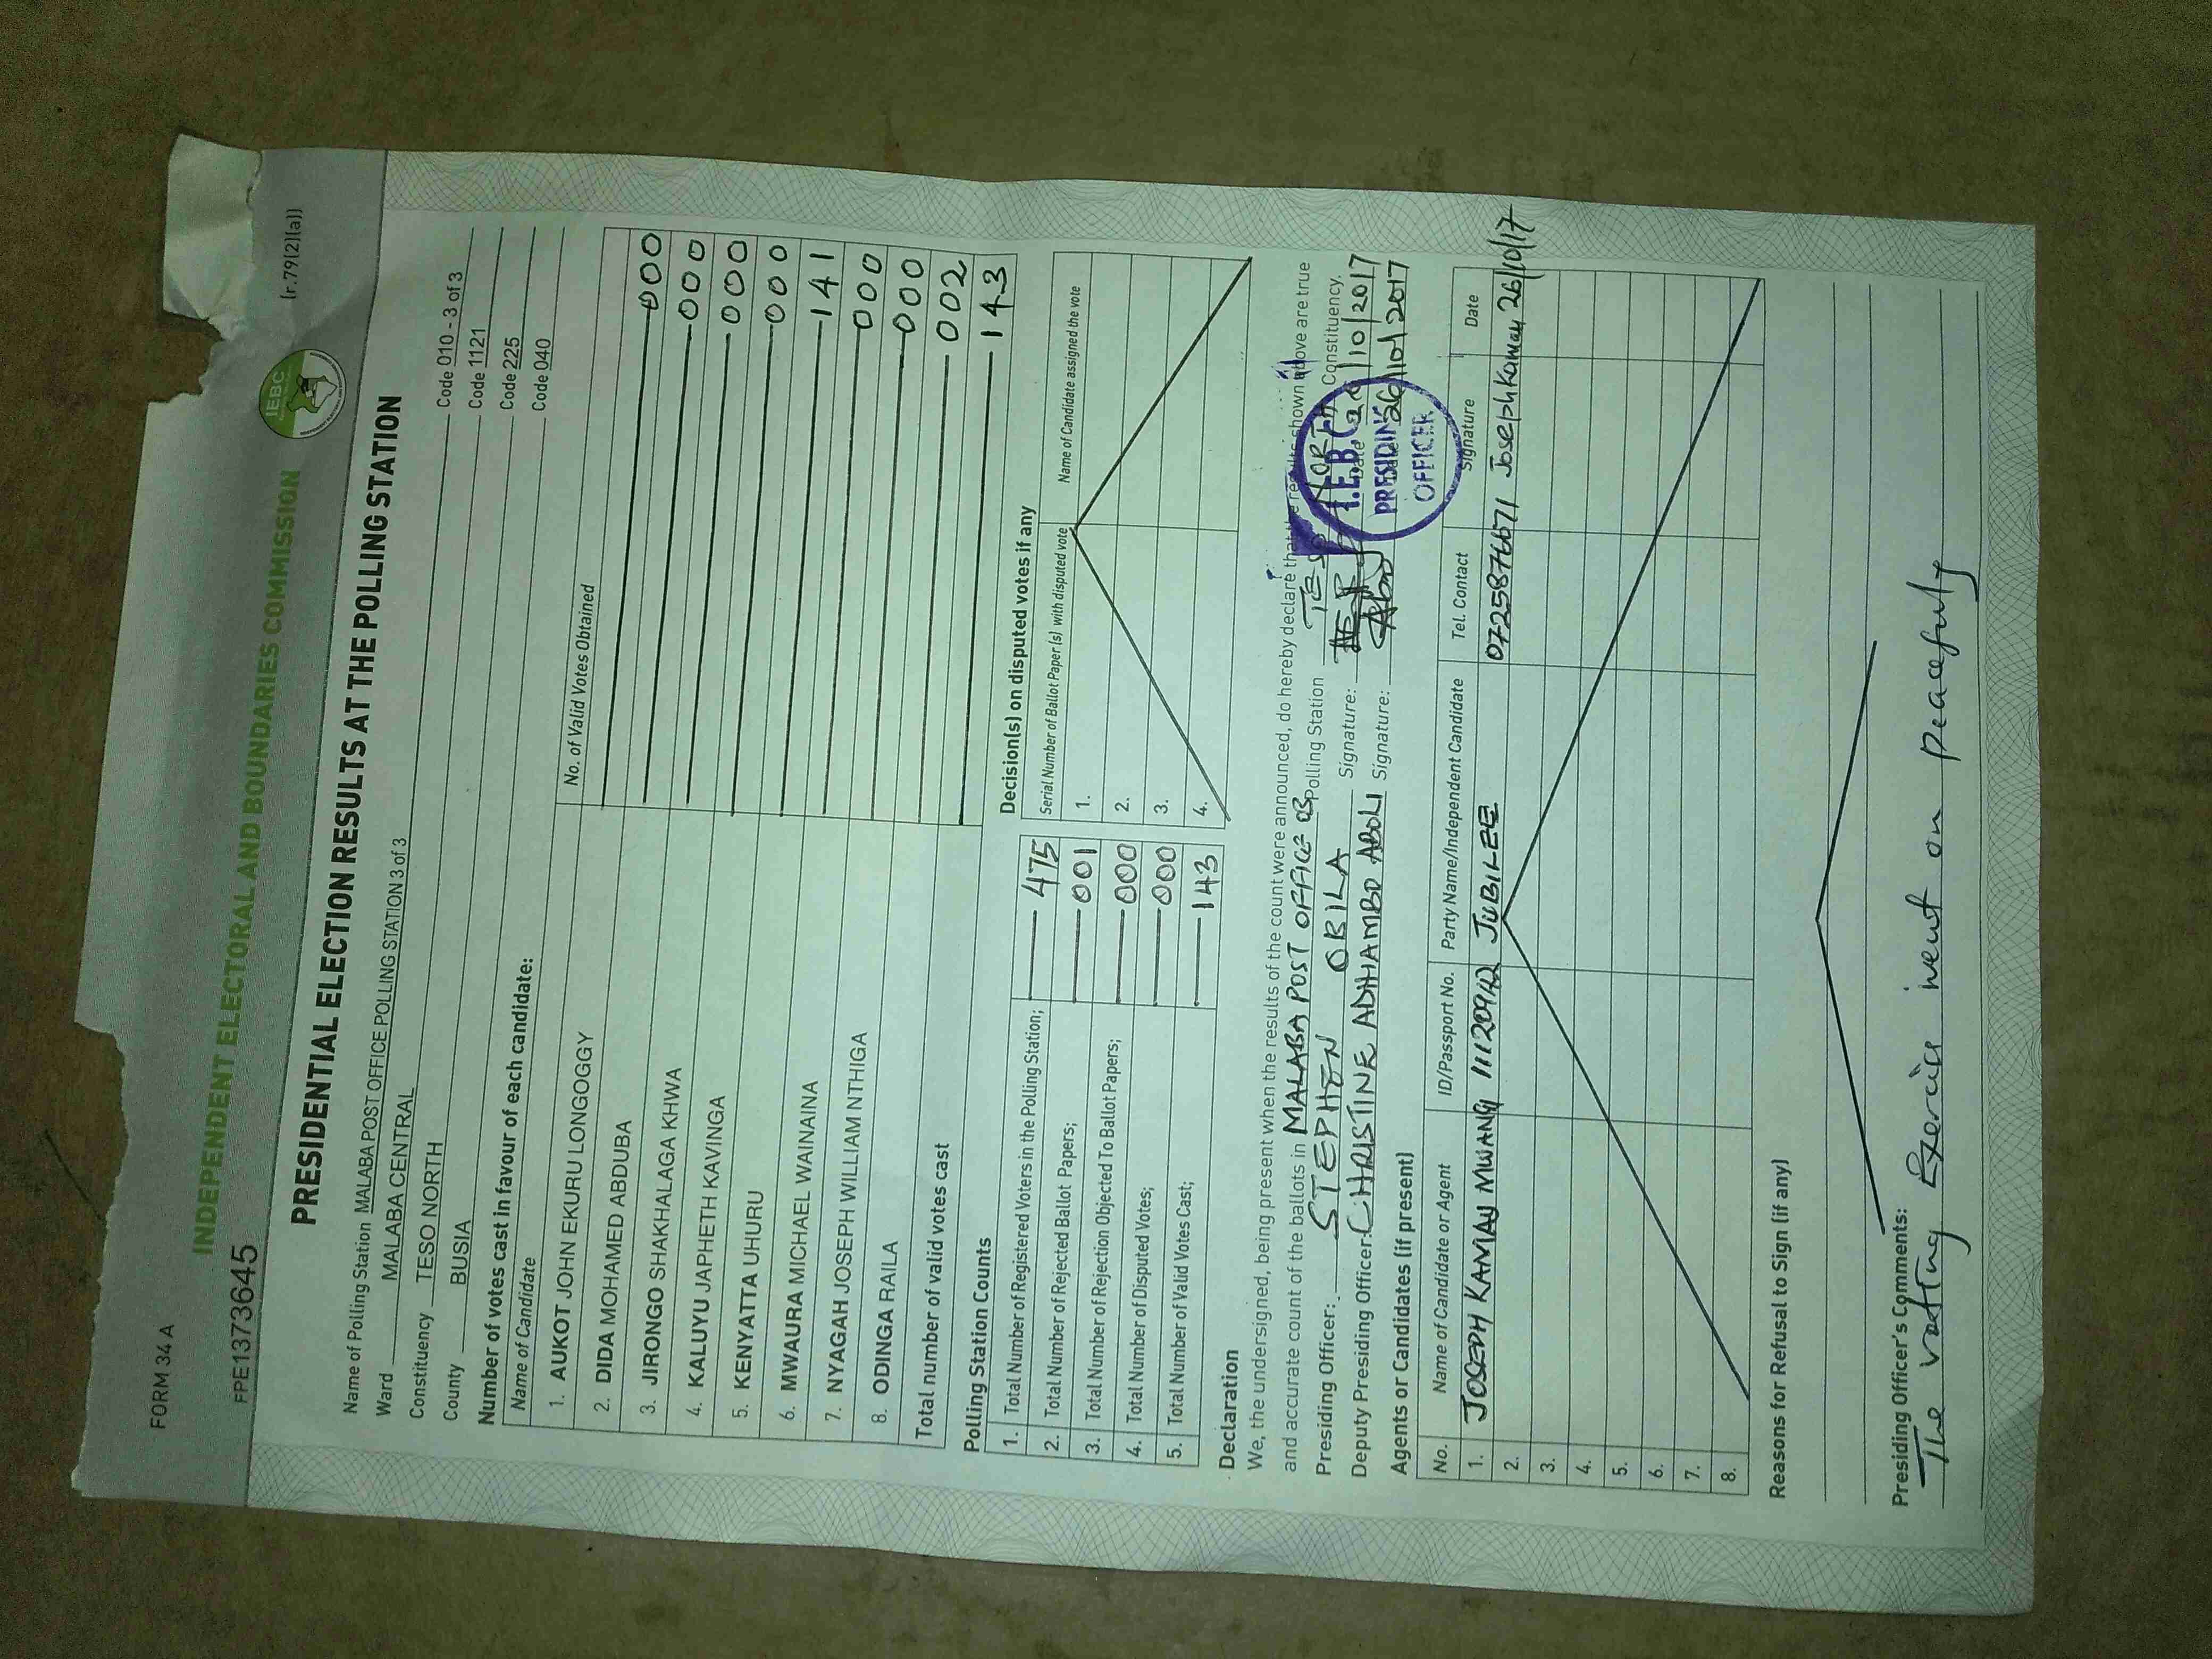 FORM 34 A
(r.79(2)(a))
FPE1373645
INDEPENDENT ELECTORAL AND BOUNDARIES COMMISSION
IEBC
PRESIDENTIAL ELECTION RESULTS AT THE POLLING STATION
Name of Polling Station MALABA POST OFFICE POLLING STATION 3 of 3 Code 010 - 3 of 3
Ward MALABA CENTRAL Code 1121
Constituency TESO NORTH Code 225
County BUSIA Code 040
Number of votes cast in favour of each candidate:
Name of Candidate No. of Valid Votes Obtained
1. AUKOT JOHN EKURU LONGOGGY 000
2. DIDA MOHAMED ABDUBA 000
3. JIRONGO SHAKHALAGA KHWA 000
4. KALUYU JAPHETH KAVINGA 000
5. KENYATTA UHURU 141
6. MWAURA MICHAEL WAINAINA 000
7. NYAGAH JOSEPH WILLIAM NTHIGA 000
8. ODINGA RAILA 002
Total number of valid votes cast 143
Polling Station Counts
1. Total Number of Registered Voters in the Polling Station; 475
2. Total Number of Rejected Ballot Papers; 001
3. Total Number of Rejection Objected To Ballot Papers; 000
4. Total Number of Disputed Votes; 000
5. Total Number of Valid Votes Cast; 143
Decision(s) on disputed votes if any
Serial Number of Ballot Paper (s) with disputed vote Name of Candidate assigned the vote
1.
2.
3.
4.
Declaration
We, the undersigned, being present when the results of the count were announced, do hereby declare that the results shown above are true
and accurate count of the ballots in MALABA POST OFFICE 03 Polling Station TESO NORTH Constituency.
Presiding Officer: STEPHEN OBILA Signature: Date 26/10/2017
Deputy Presiding Officer: CHRISTINE ADHIAMBO ABOLI Signature: 26/10/2017
I.E.B.C
PRESIDING
OFFICER
Agents or Candidates (if present)
No. Name of Candidate or Agent ID/Passport No. Party Name/Independent Candidate Tel. Contact Signature Date
1. JOSEPH KAMAU MWANGI 11120942 JUBILEE Joseph Kamau 26/10/17
2.
3.
4.
5.
6.
7.
8.
Reasons for Refusal to Sign (if any)
Presiding Officer's Comments:
The votting Exercise went on peacefully